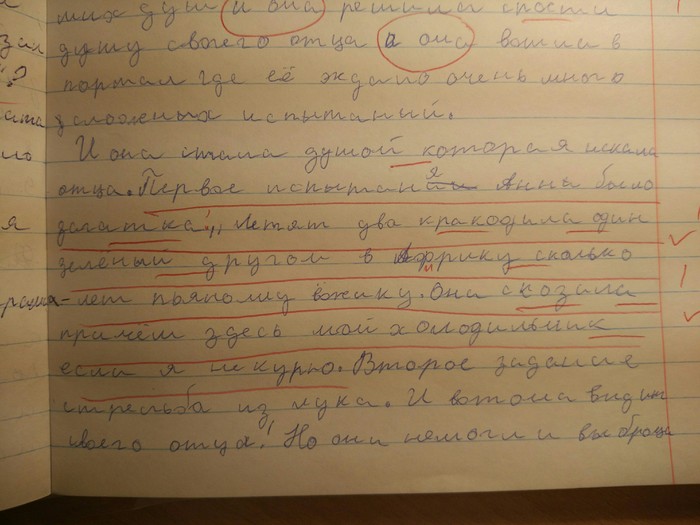 ших душ и она решила спости
зал душу своего отца и она вошла в
? портал где её ждало очень много
сложеных испытаний.
И она стала душой которая искала
отца. Первое испытания Анны было
я загатка: "Летят два кракодила один
зелёный другом в Африку сколько
лет пьяному ёжику. Она скозала
причём здесь мой холодильник
если я не курю. Второе задание
стрельба из лука. И вот она видит
своего отца! Но они немогли выбраца